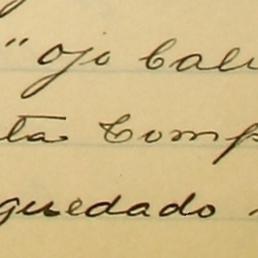 " Ojo Cali
ta Comp
quedado